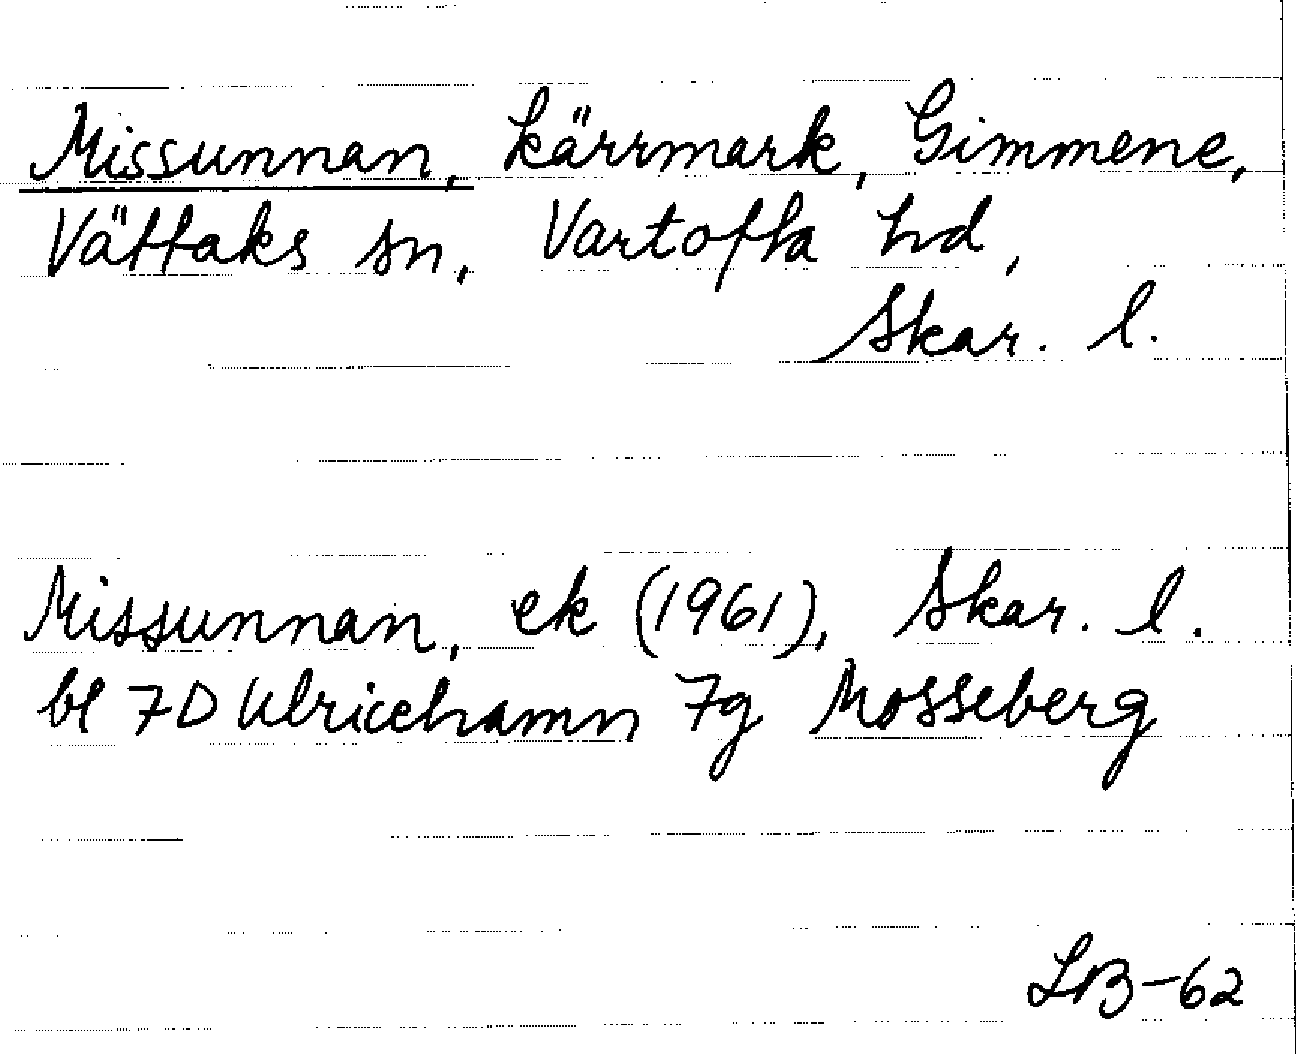 Missunnan, kärrmark, Gimmene,
Vättaks sn, Vartofta hd,
Skar. l.
Missunnan, ek (1961), Skar. l.
bl 7D Ulricehamn 7g Mosseberg
LB-62